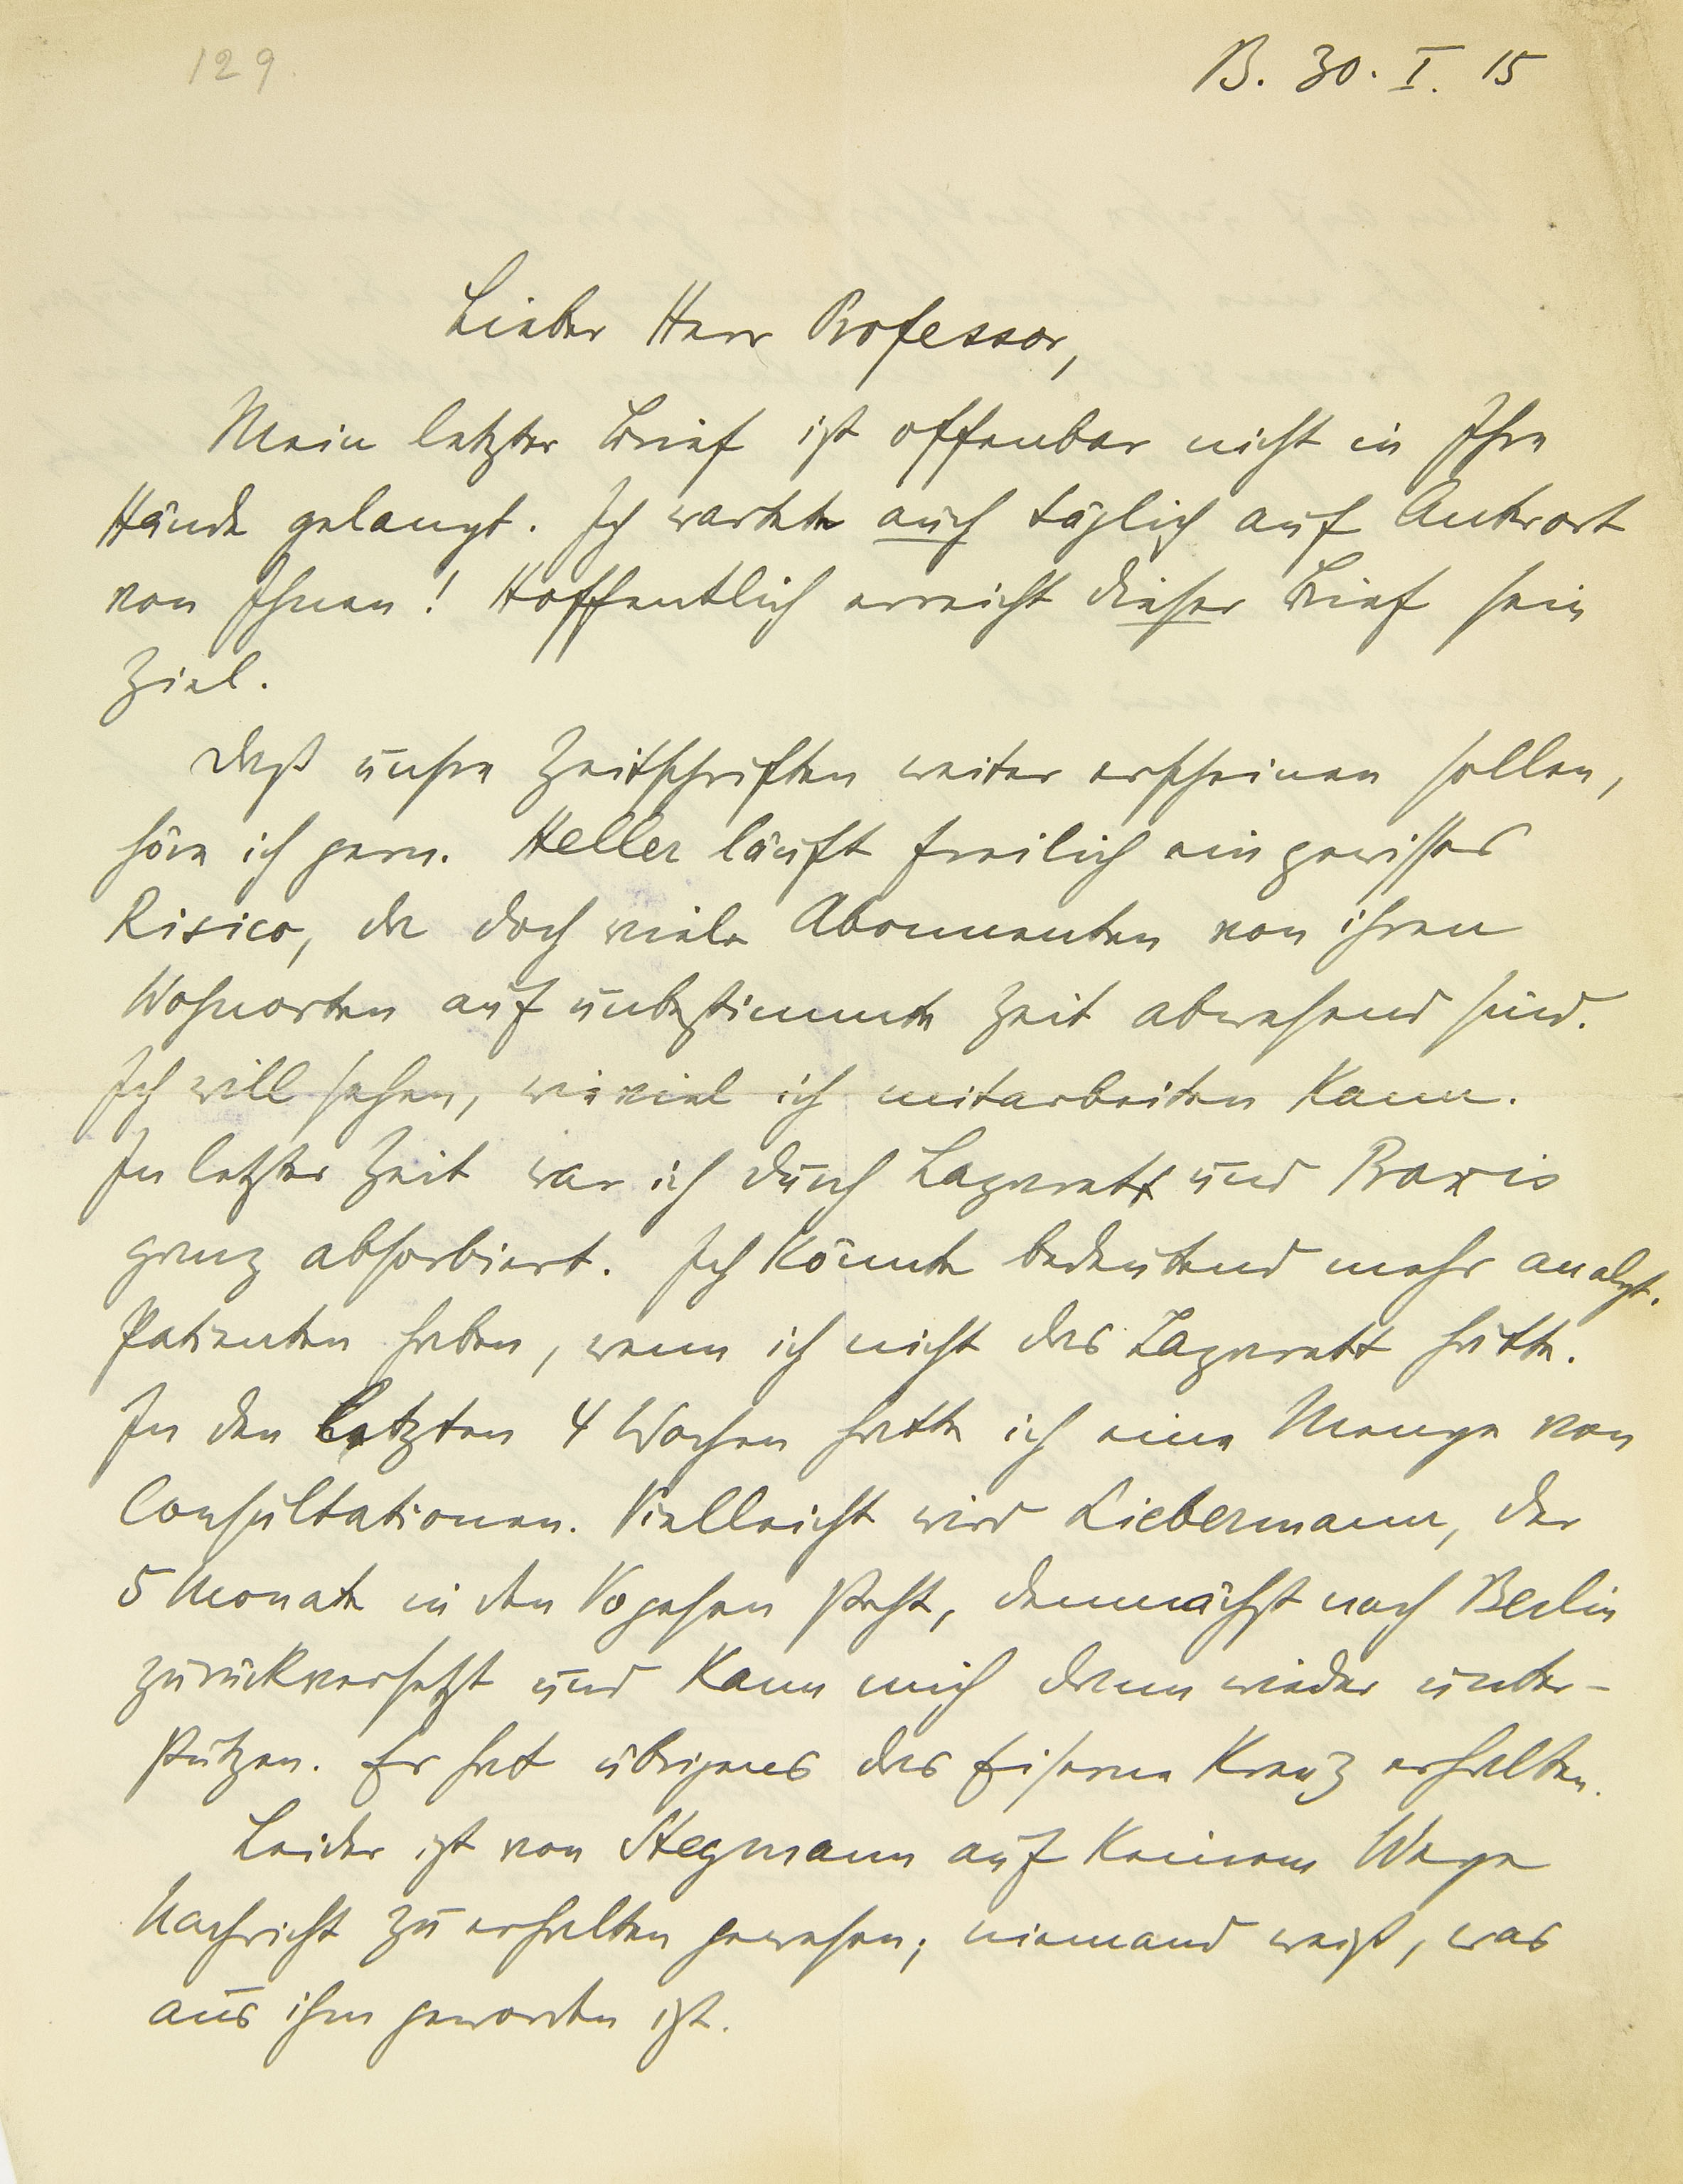 129.
B. 30. I. 15
Lieber Herr Professor,
Mein letzter Brief ist offenbar nicht in Ihre
Hände gelangt. Ich wartete auch täglich auf Antwort
von Ihnen! Hoffentlich erreicht dieser Brief sein
Ziel.
Daß unsre Zeitschriften weiter erscheinen sollen,
höre ich gern. Heller läuft freilich ein gewisses
Risico, da doch viele Abonnenten von ihren
Wohnorten auf unbestimmte Zeit abwesend sind.
Ich will sehen, wieviel ich mitarbeiten kann.
In letzter Zeit war ich durch Lazarett und Praxis
ganz absorbiert. Ich könnte bedeutend mehr analyt.
Patienten haben, wenn ich nicht das Lazarett hätte.
In den letzten 4 Wochen hatte ich eine Menge von
Consultationen. Vielleicht wird Liebermann, der
5 Monate in den Vogesen steht, demnächst nach Berlin
zurückversetzt und kann mich dann wieder unter-
stützen. Er hat übrigens das Eiserne Kreuz erhalten.
Leider ist von Stegmann auf keinem Wege
Nachricht zu erhalten gewesen; niemand weiß, was
aus ihm geworden ist.